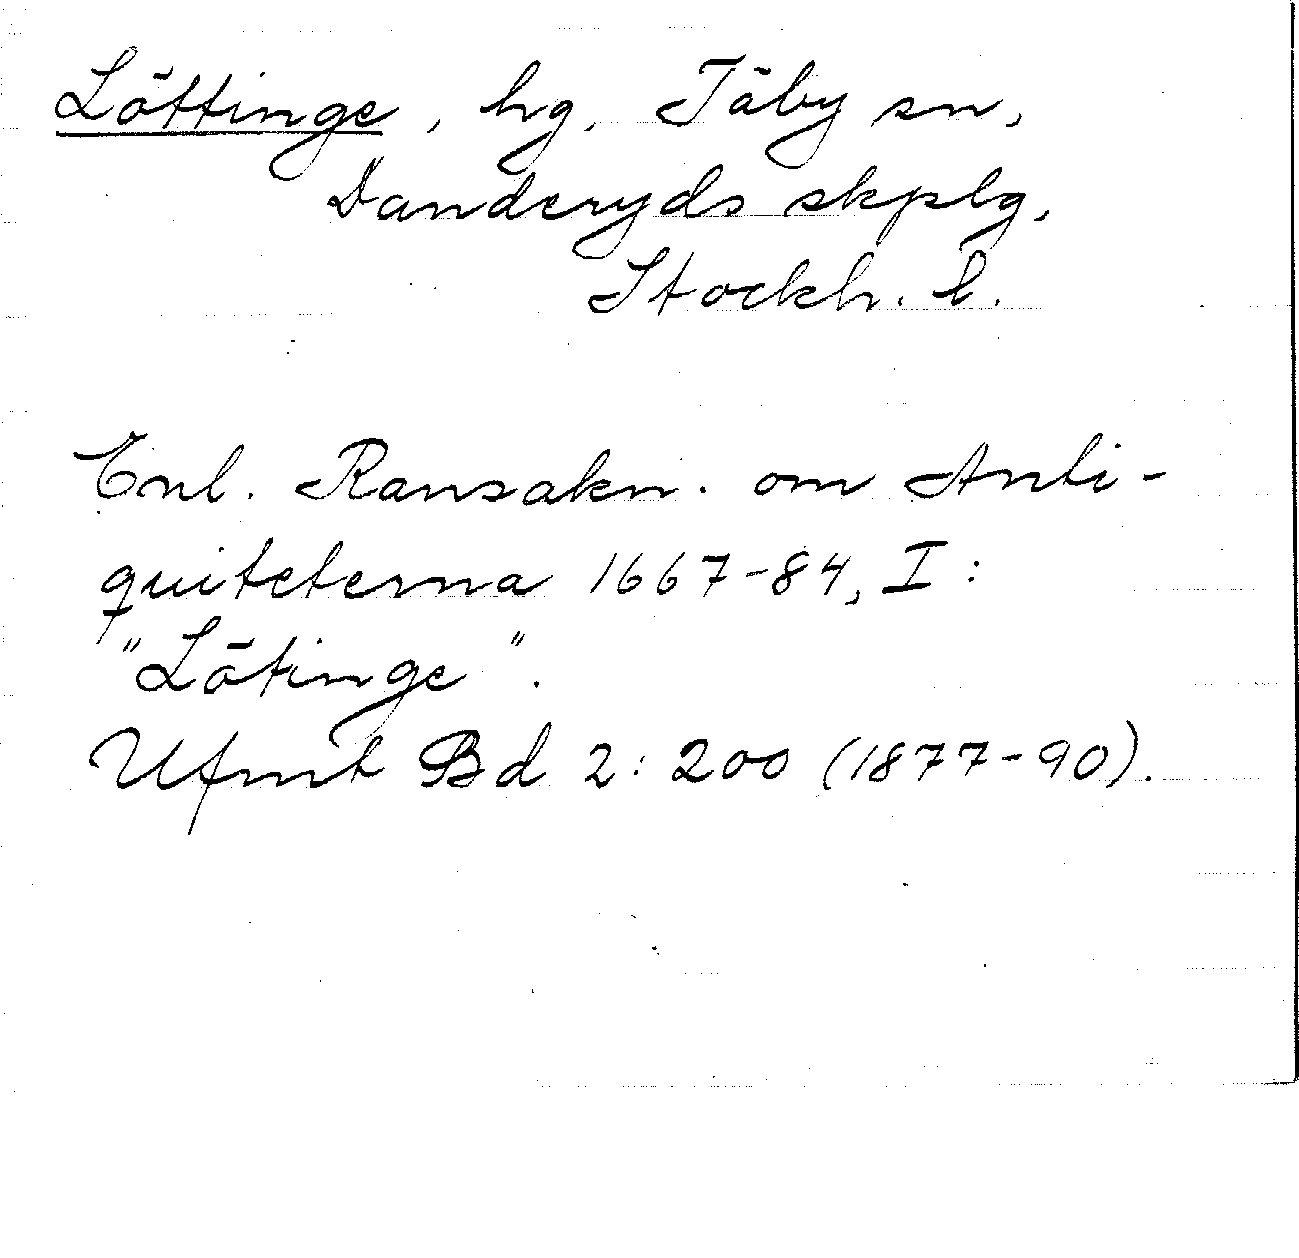 Löttinge, hg, Täby sn,
Danderyds skplg,
Stockh. l.
Enl. Ransakn. om Anti-
quiteterna 1667-84, I:
"Lötinge".
Ufmt Bd 2: 200 (1877-90).